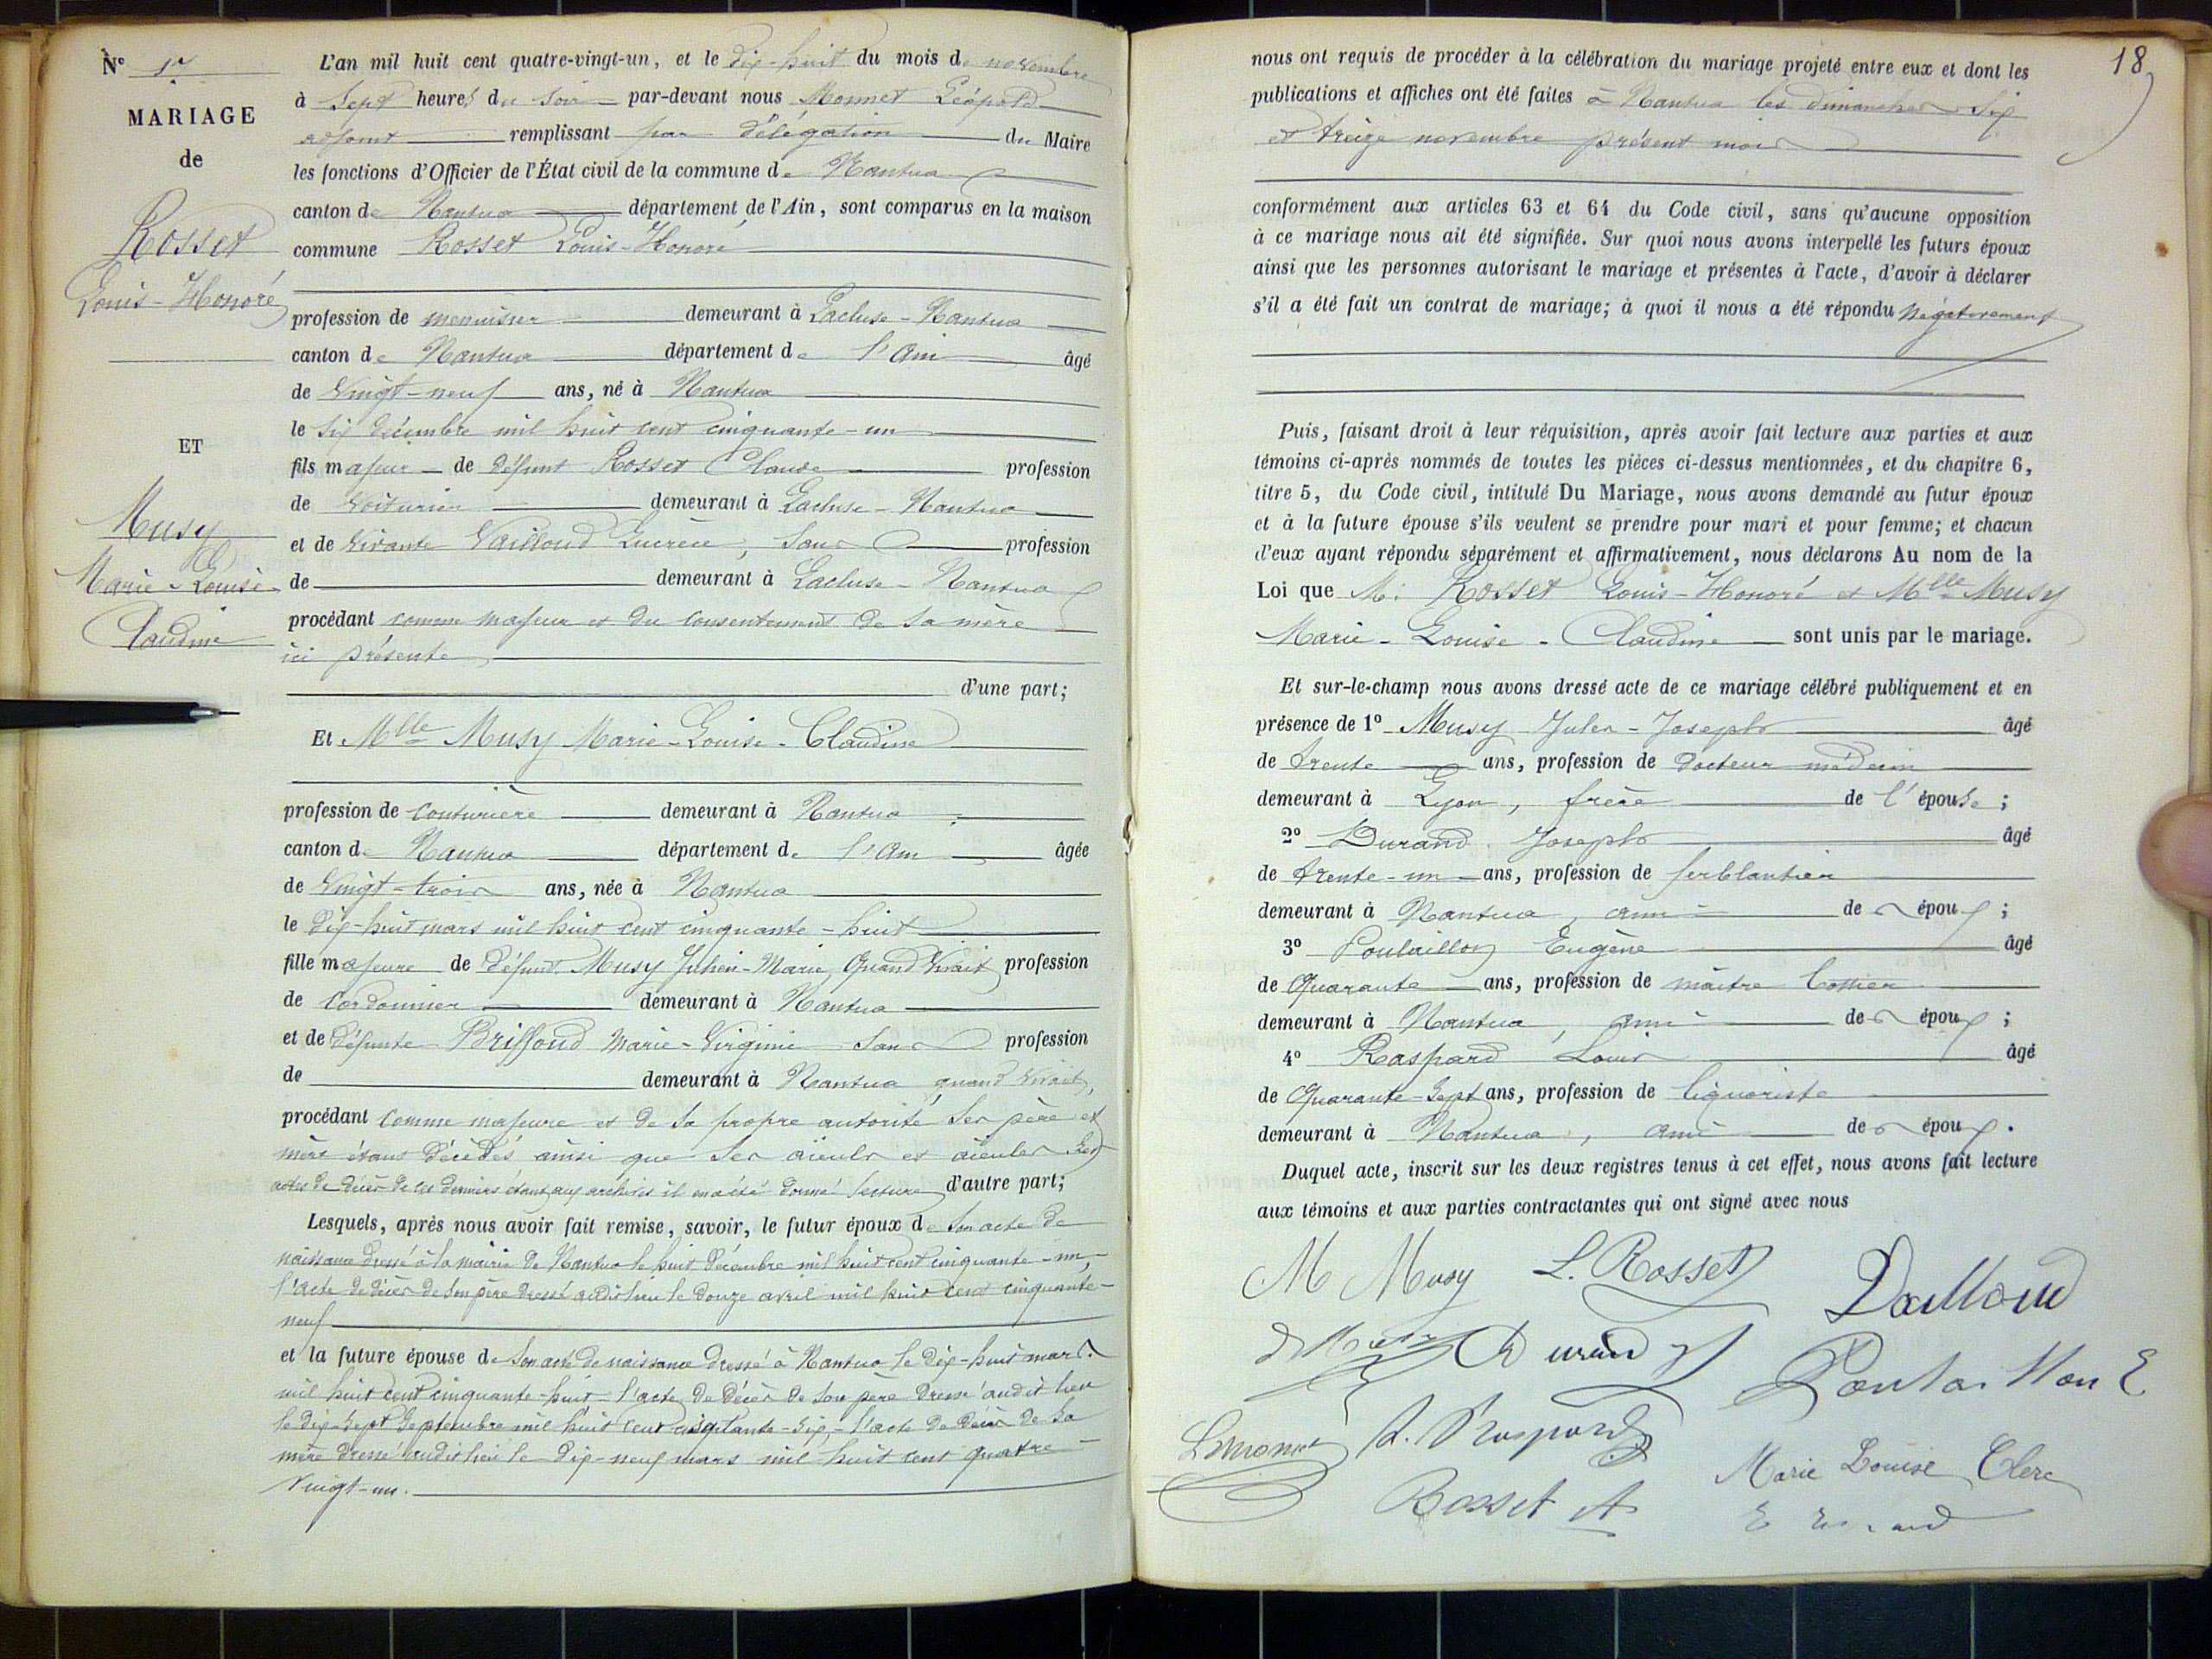 N° 17
MARIAGE
de
Rosset
Louis-Honoré
ET
Musy
Marie-Louise
Claudine
L'an mil huit cent quatre-vingt-un, et le dix-huit du mois de novembre
à Sept heures du soir par-devant nous Monnet Léopold
adjoint remplissant par délégation du Maire
les fonctions d'Officier de l'État civil de la commune de Nantua
canton de Nantua département de l'Ain, sont comparus en la maison
commune Rosset Louis-Honoré
profession de menuisier demeurant à Lacluse-Nantua
canton de Nantua département de l'Ain âgé
de Vingt-neuf ans, né à Nantua
le six décembre mil huit cent cinquante-un
fils majeur de défunt Rosset Claude profession
de Voiturier demeurant à Lacluse-Nantua
et de Vivante Vailloud Lucrèce, Sans profession
de demeurant à Lacluse-Nantua
procédant comme majeur et du consentement de sa mère
ici présente
d'une part;
Et Mlle Musy Marie-Louise-Claudine
profession de couturière demeurant à Nantua
canton de Nantua département de l'Ain âgée
de Vingt-trois ans, née à Nantua
le dix-huit mars mil huit cent cinquante-huit
fille majeure de défunt Musy Julien-Marie, Quand Vivait profession
de Cordonnier demeurant à Nantua
et de défunte Briffoud Marie-Virginie Sans profession
de demeurant à Nantua quand vivait,
procédant comme majeure et de sa propre autorité ses père et
mère étant décédés ainsi que ses aïeuls et aïeules les
actes de décès de ces derniers étant aux archives il en a été donné lecture d'autre part;
Lesquels, après nous avoir fait remise, savoir, le futur époux de son acte de
naissance dressé à la mairie de Nantua le huit décembre mil huit cent cinquante-un,
l'acte de décès de son père dressé audit lieu le douze avril mil huit cent cinquante-
neuf
et la future épouse de son acte de naissance dressé à Nantua le dix-huit mars
mil huit cent cinquante-huit l'acte de décès de son père dressé audit lieu
le dix-sept Septembre mil huit cent soixante-six, l'acte de décès de sa
mère dressé audit lieu le dix-neuf mars mil huit cent quatre-
vingt-un.
18
nous ont requis de procéder à la célébration du mariage projeté entre eux et dont les
publications et affiches ont été faites à Nantua les dimanches six
et treize novembre présent mois
conformément aux articles 63 et 64 du Code civil, sans qu'aucune opposition
à ce mariage nous ait été signifiée. Sur quoi nous avons interpellé les futurs époux
ainsi que les personnes autorisant le mariage et présentes à l'acte, d'avoir à déclarer
s'il a été fait un contrat de mariage; à quoi il nous a été répondu Négativement
Puis, faisant droit à leur réquisition, après avoir fait lecture aux parties et aux
témoins ci-après nommés de toutes les pièces ci-dessus mentionnées, et du chapitre 6,
titre 5, du Code civil, intitulé Du Mariage, nous avons demandé au futur époux
et à la future épouse s'ils veulent se prendre pour mari et pour femme; et chacun
d'eux ayant répondu séparément et affirmativement, nous déclarons Au nom de la
Loi que M. Rosset Louis-Honoré et Mlle Musy
Marie-Louise-Claudine sont unis par le mariage.
Et sur-le-champ nous avons dressé acte de ce mariage célébré publiquement et en
présence de 1° Musy Jules-Joseph âgé
de trente ans, profession de Docteur médecin
demeurant à Lyon, frère de l'épouse;
2° Durand Joseph âgé
de trente-un ans, profession de ferblantier
demeurant à Nantua, ami des époux;
3° Poulaillon Eugène âgé
de Quarante ans, profession de maître
demeurant à Nantua, ami des époux;
4° Raspard Louis âgé
de Quarante-Sept ans, profession de liquoriste
demeurant à Nantua, ami des époux.
Duquel acte, inscrit sur les deux registres tenus à cet effet, nous avons fait lecture
aux témoins et aux parties contractantes qui ont signé avec nous
M Musy L. Rosset Vailloud
Durand Poulaillon E
L. Monnet L. Raspard Marie Louise Clerc
Rosset A